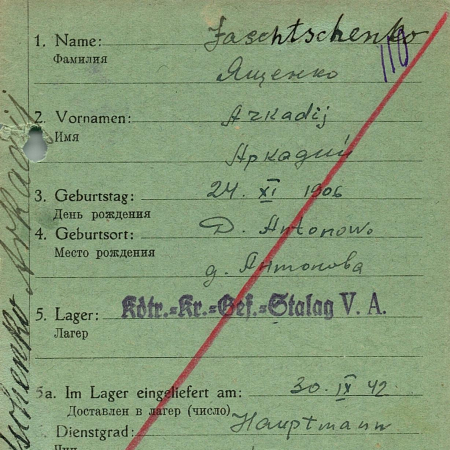 1. Name: Jaschtschenko
Фамилия Ященко
110
2. Vornamen: Arkadij
Имя Аркадий
3. Geburtstag: 24. XI 1906
День рождения
4. Geburtsort: D. Antonowo
Место рождения д. Антонова
5. Lager: Kdtr.=Kr.=Gef.=Stalag V. A.
Лагерь
5a. Im Lager eingeliefert am: 30. IX 42.
Доставлен в лагерь (число)
Dienstgrad: Hauptmann
Чин
Arkadij